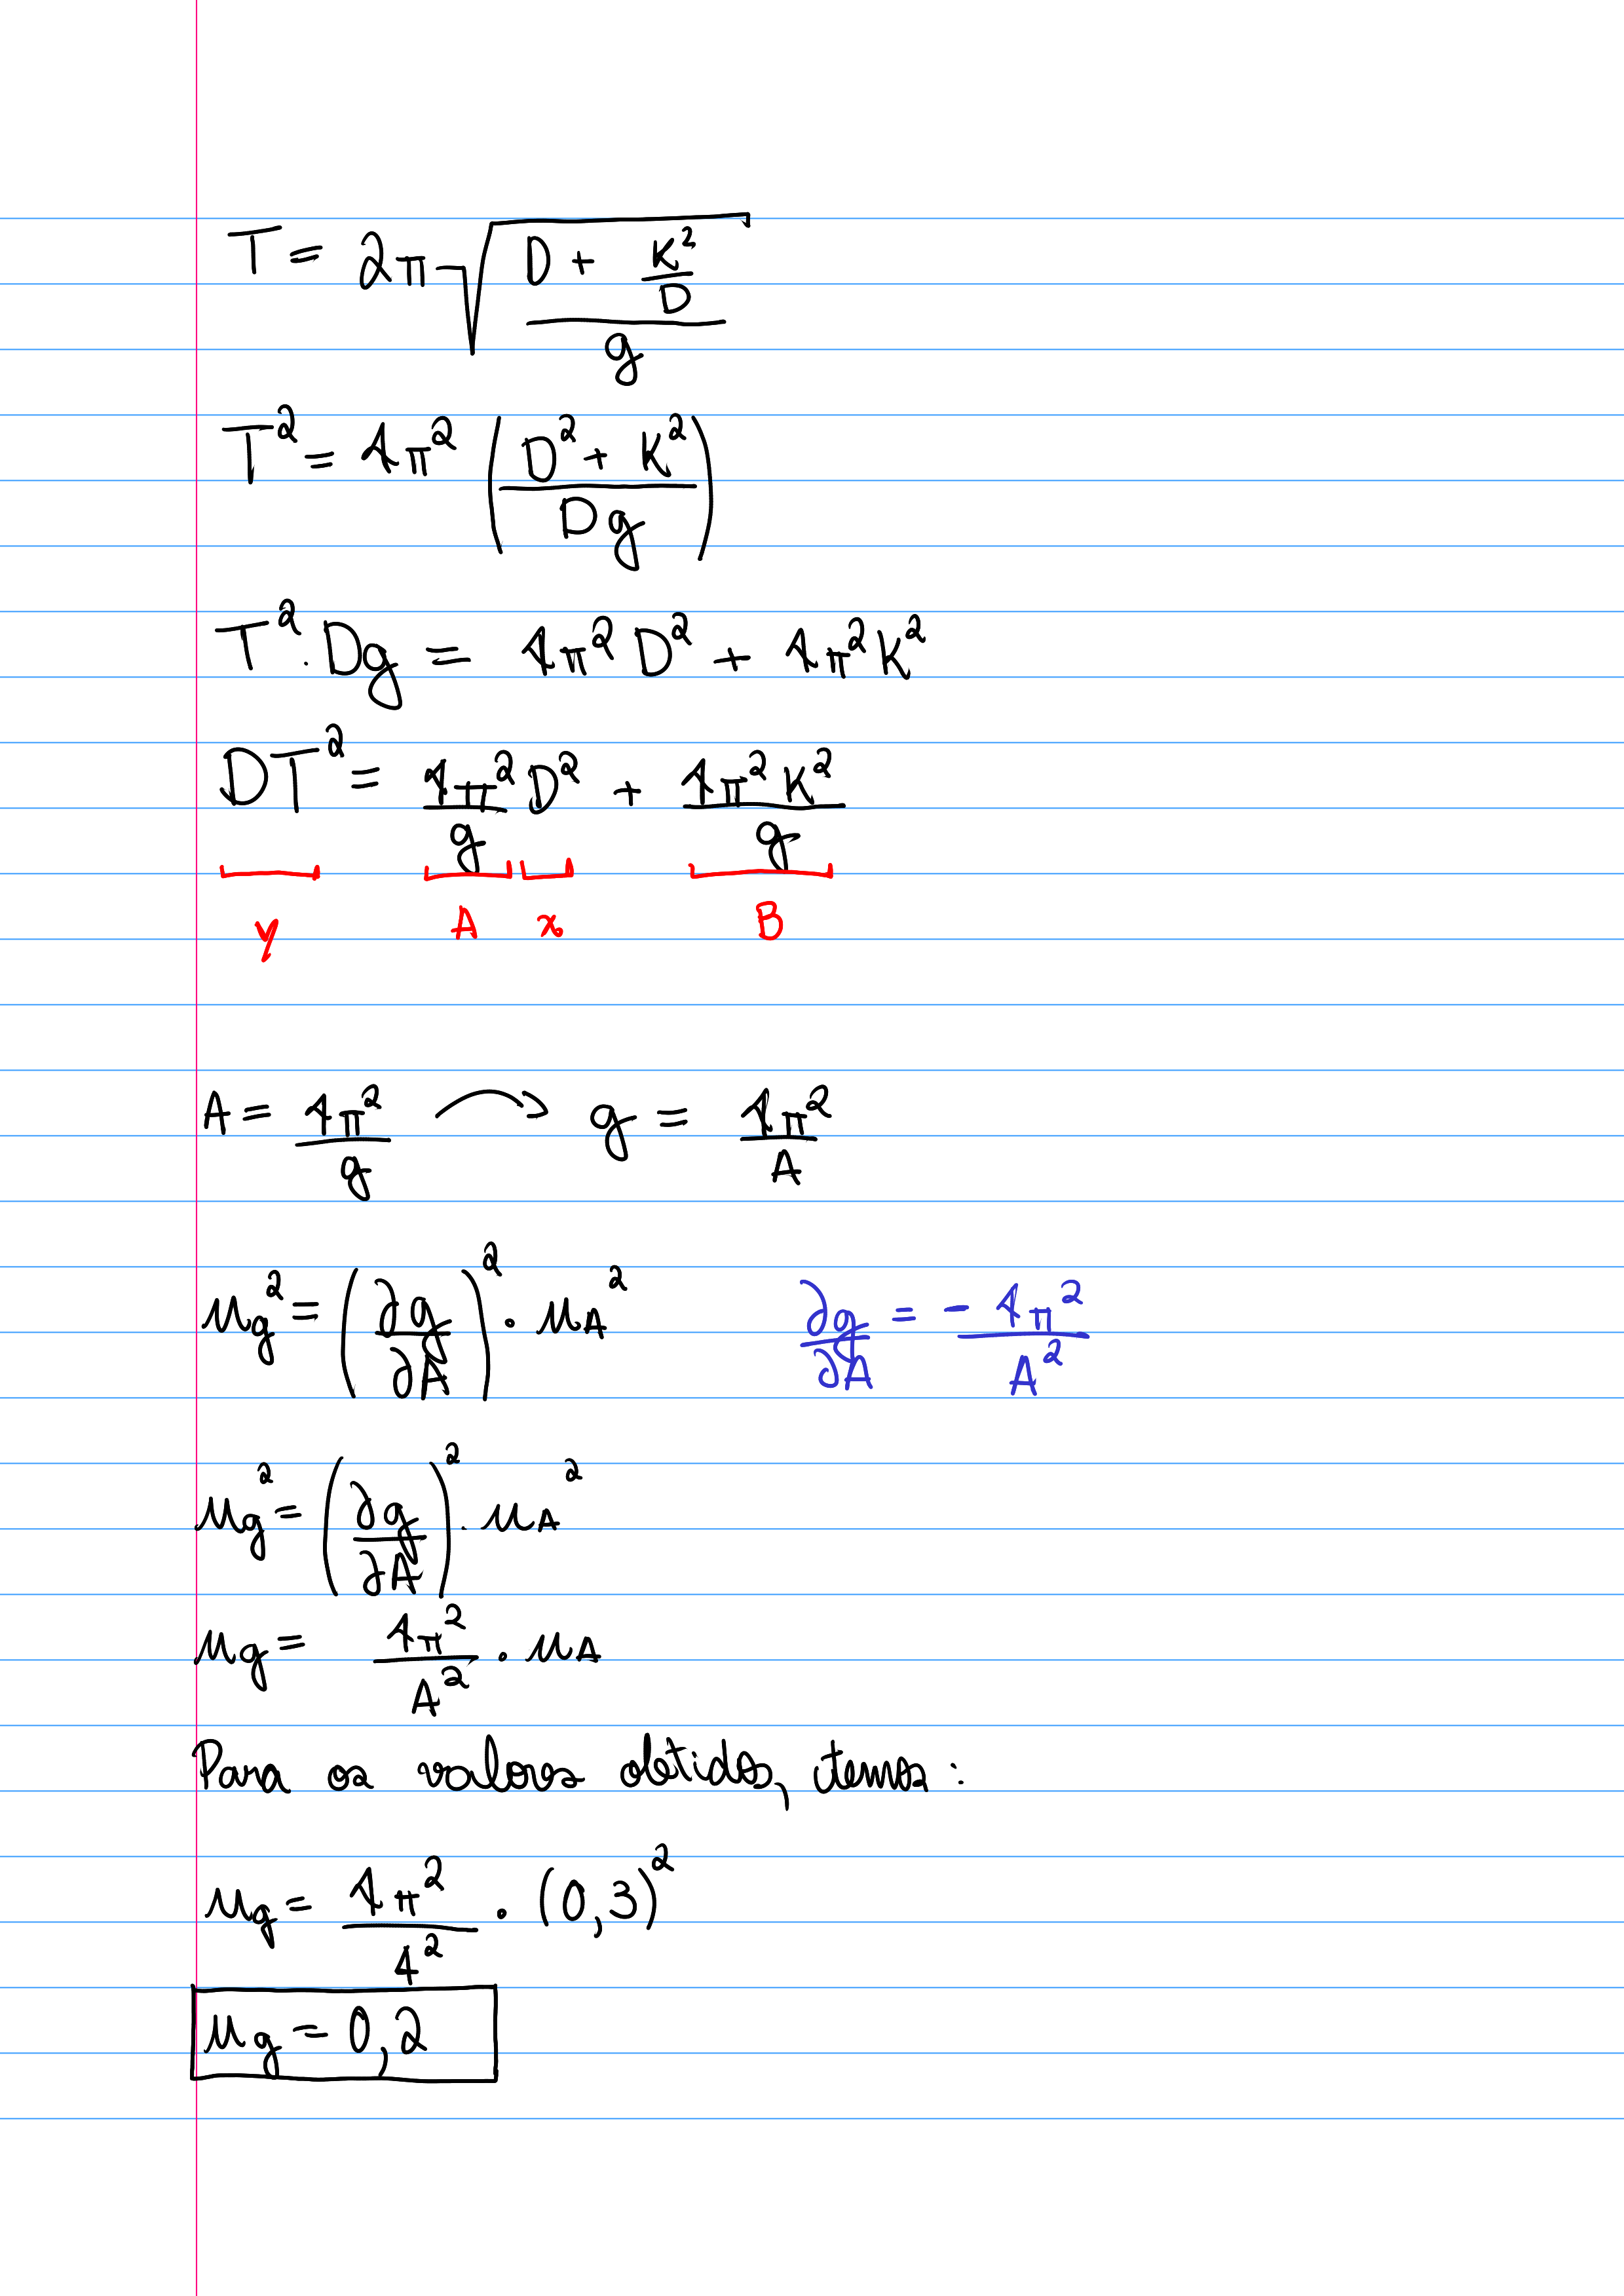 T = 2π √((D + K²/D)/g)
T² = 4π² ((D² + K²)/(Dg))
T² . Dg = 4π² D² + 4π² K²
DT² = (4π²/g) D² + (4π² K²)/g
y A x B
A = 4π²/g → g = 4π²/A
μg² = (∂g/∂A)² · μA² ∂g/∂A = - 4π²/A²
μg² = (∂g/∂A)² . μA²
μg = 4π²/A² . μA
Para os valores obtidos, temos :
μg = 4π²/4² . (0,3)²
μg = 0,2